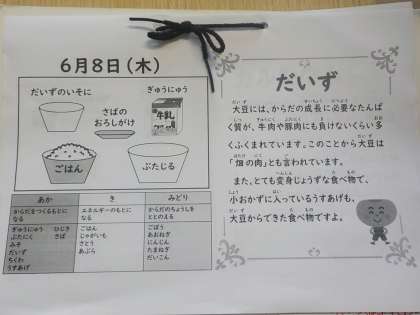 6月8日(木)
だいずのいそに
ぎゅうにゅう
牛乳
さばの
おろしがけ
ごはん
ぶたじる
あか
き
みどり
からだをつくるもとに
なる
エネルギーのもとに
なる
からだのちょうしを
ととのえる
ぎゅうにゅう ひじき
ぶたにく さば
みそ
だいず
ちくわ
うすあげ
ごはん
じゃがいも
さとう
あぶら
ごぼう
あおねぎ
にんじん
たまねぎ
だいこん
だいず
大豆には、からだの成長に必要なたんぱ
く質が、牛肉や豚肉にも負けないくらい多
くふくまれています。このことから大豆は
「畑の肉」とも言われています。
また、とても変身じょうずな食べ物で、
小おかずに入っているうすあげも、
大豆からできた食べ物ですよ。